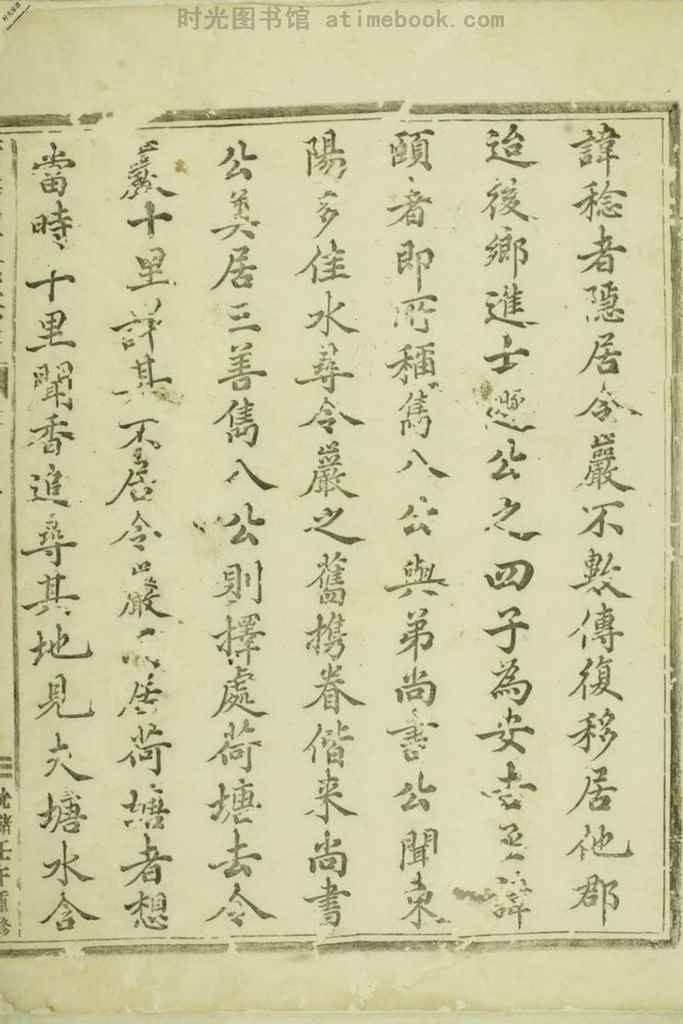 时光图书馆 atimebook.com
諱稔者隱居令巖不數傳復移居他郡
迨後鄉進士遜公之四子為安吉丞諱
頤者即所稱雋八公與弟尚書公聞東
陽多佳水尋令巖之舊攜眷偕来尚書
公奠居三善雋八公則擇處荷塘去令
巖十里許其不居令巖居荷塘者想
當時十里聞香追尋其地見大塘水含
光緒壬午重修